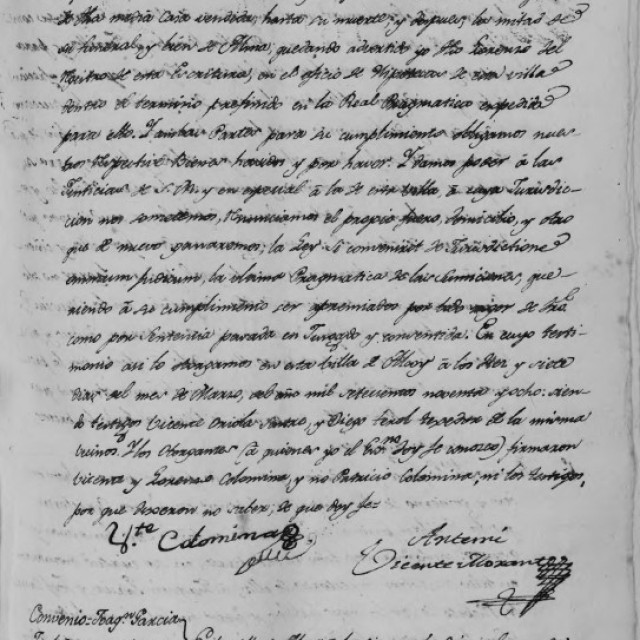 de dha mitad Casa vendida, hasta su muerte, y despues, las mitad de
su funeral, y bien de Alma; quedando advertido yo dho Lorenzo del
Rexistro de esta Escritura, en el oficio de Hipotecas de esta villa
dentro el termino prefinido en la Real Pragmatica expedida
para ello. Y ambas Partes para su cumplimiento obligamos nues-
tros respective Bienes havidos y por haver. Y damos poder â las
Justicias de S. M. y en especial â la de esta villa, â cuya Jurisdic-
cion nos sometemos, renunciamos el propio fuero, domicilio, y otro
que de nuevo ganaremos; la Ley si convenerit de Jurisdictione
omnium judicum, la ultima Pragmatica de las sumisiones, que-
riendo â su cumplimiento ser apremiados por todo rigor de
como por Sentencia pasada en Juzgado y conventida. En cuyo testi-
monio asi lo otorgamos en esta villa de Alcoy â los diez y siete
dias del mes de Marzo, del año mil setecientos noventa y ocho: sien-
do testigos Vicente Oriola y Diego Terol Texedor de la misma
vecinos. Y los Otorgantes (â quienes yo el Essno doy fe conozco) firmaron
Vicente y Lorenzo Colomina, y no Patricio Colomina, ni los testigos,
por que dixeron no saber; de que doy fe=
Vte Colomina
Antemi
Vicente Morant
Convenio: Garcia